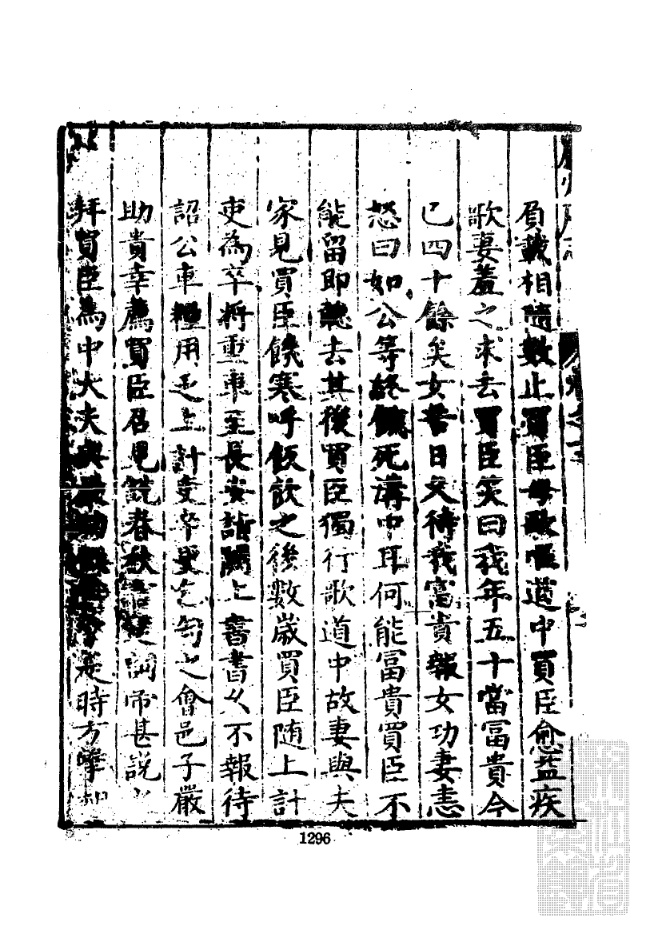 負戴相隨數止買臣毋歌嘔道中買臣愈益疾
歌妻羞之求去買臣笑曰我年五十當富貴今
已四十餘矣女苦日久待我富貴報女功妻恚
怒曰如公等終餓死溝中耳何能富貴買臣不
能留即聽去其後買臣獨行歌道中故妻與夫
家見買臣饑寒呼飯飲之後數歲買臣隨上計
吏為卒將重車至長安詣闕上書書久不報待
詔公車糧用乏上計吏卒更乞匄之會邑子嚴
助貴幸薦買臣召見說春秋言楚詞帝甚說
拜買臣為中大夫與嚴助是時方
1296